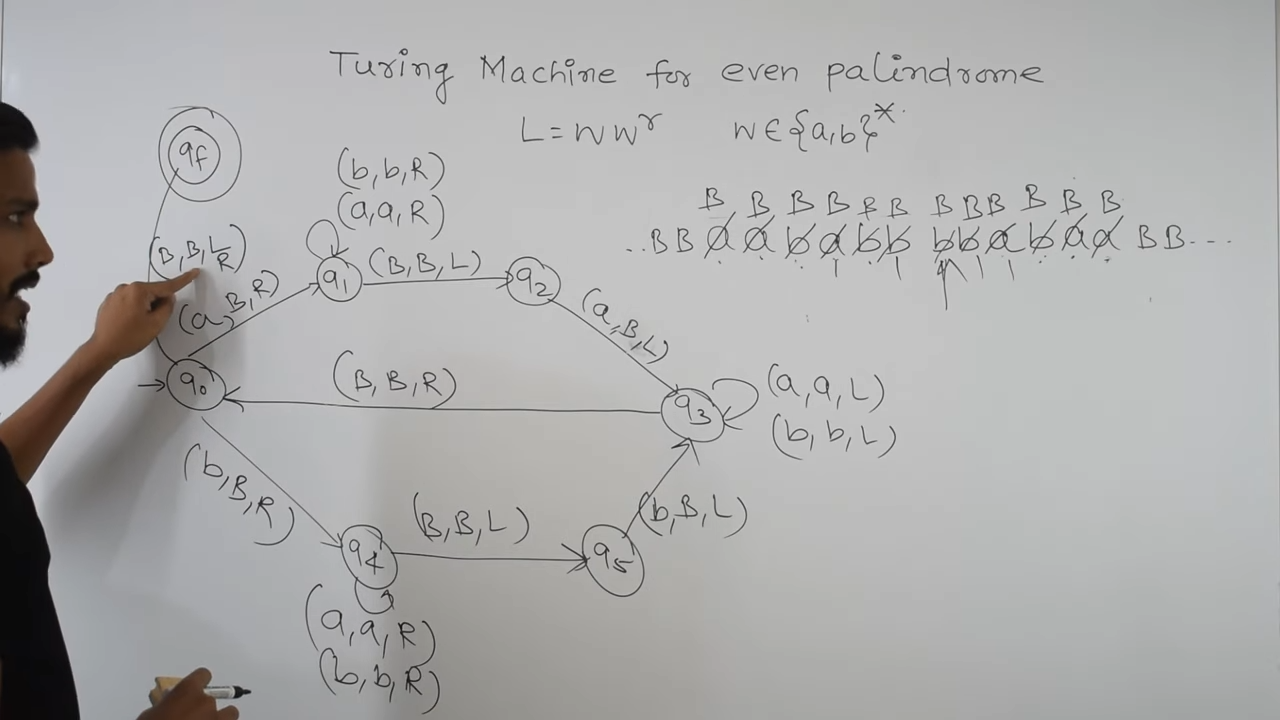 Turing Machine for even palindrome
L = W W^r W ∈ {a,b}*
qf
(b, b, R)
(a, a, R)
B, B, B B B B B B B B B B
..BB a a b a b b b b a b a a BB---
(B, B, L/R)
(a, B, R)
q1
(B, B, L)
q2
(a, B, L)
q0
(B, B, R)
q3
(a, a, L)
(b, b, L)
(b, B, R)
q4
(B, B, L)
q5
(b, B, L)
(a, a, R)
(b, b, R)